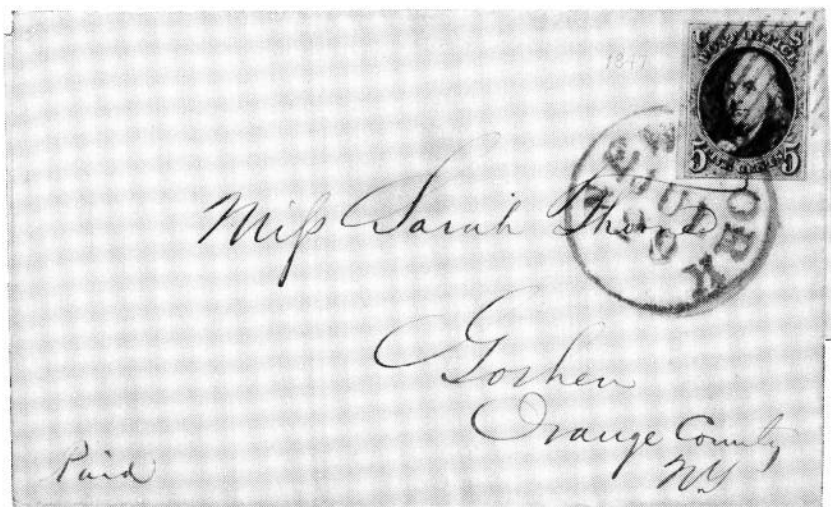 1847
U S
POST OFFICE
5 FIVE CENTS 5
NEW YORK
JUL
Miss Sarah Thorne
Goshen
Orange County
NY
Paid